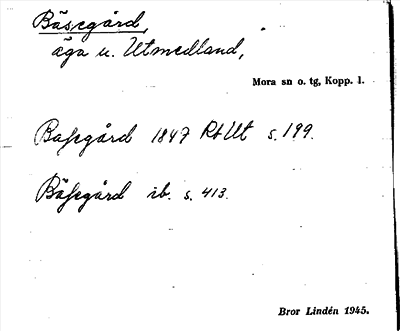 Bäsegård,
äga u. Utmedland,
Mora sn o. tg, Kopp. l.
Basegård 1847 Rb Ut s. 199.
Bäsegård ib. s. 413.
Bror Lindén 1945.